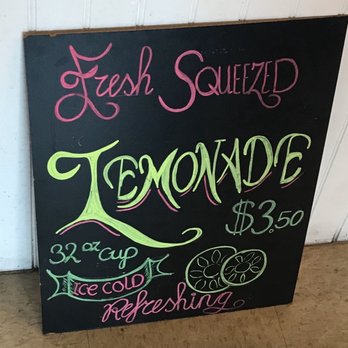 Fresh SQUEEZED
LEMONADE
$3.50
32 oz CUP
ICE COLD
Refreshing